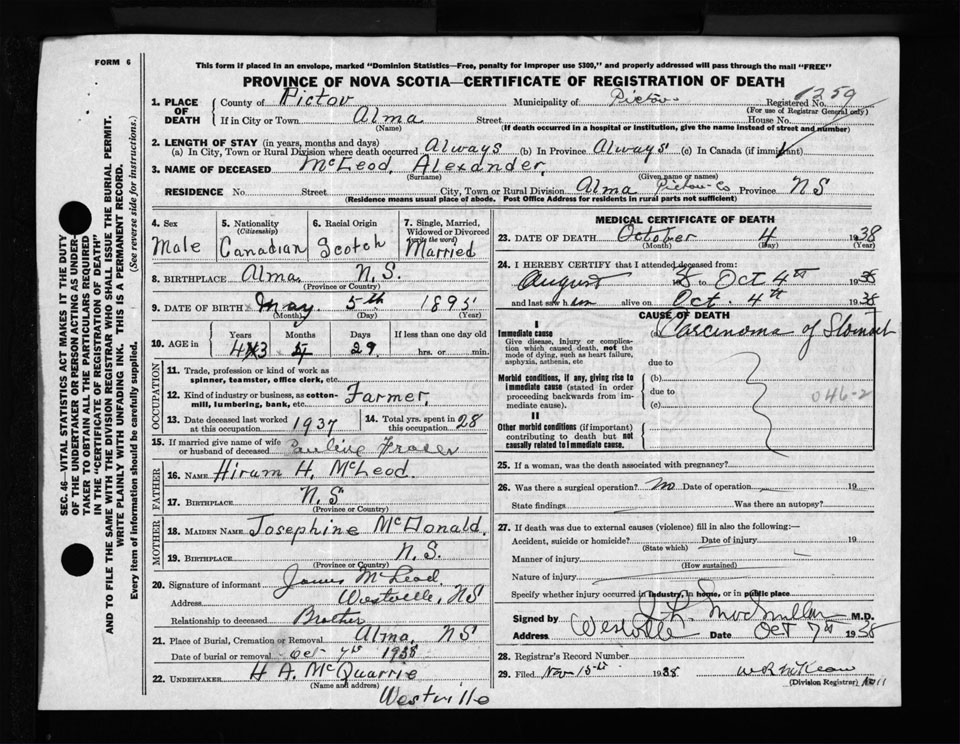 FORM 6
This form if placed in an envelope, marked "Dominion Statistics—Free, penalty for improper use $300," and properly addressed will pass through the mail "FREE"
PROVINCE OF NOVA SCOTIA—CERTIFICATE OF REGISTRATION OF DEATH
1. PLACE OF DEATH
County of Pictou Municipality of Pictou Registered No. 1259
(For use of Registrar General only)
If in City or Town Alma Street House No.
(Name) (If death occurred in a hospital or institution, give the name instead of street and number)
2. LENGTH OF STAY (in years, months and days)
(a) In City, Town or Rural Division where death occurred Always (b) In Province Always (c) In Canada (if immigrant)
3. NAME OF DECEASED McLeod, Alexander,
(Surname) (Given name or names)
RESIDENCE No. Street City, Town or Rural Division Alma Pictou Co Province NS
(Residence means usual place of abode. Post Office Address for residents in rural parts not sufficient)
4. Sex
Male
5. Nationality
(Citizenship)
Canadian
6. Racial Origin
Scotch
7. Single, Married, Widowed or Divorced
(write the word)
Married
8. BIRTHPLACE Alma N. S.
(Province or Country)
9. DATE OF BIRTH May 5th 1895
(Month) (Day) (Year)
10. AGE in
Years Months Days If less than one day old
43 29 hrs. or min.
OCCUPATION
11. Trade, profession or kind of work as spinner, teamster, office clerk, etc.
12. Kind of industry or business, as cotton-mill, lumbering, bank, etc. Farmer
13. Date deceased last worked at this occupation 1937
14. Total yrs. spent in this occupation 28
15. If married give name of wife or husband of deceased Pauline Fraser
FATHER
16. NAME Hiram H. McLeod
17. BIRTHPLACE N. S
(Province or Country)
MOTHER
18. MAIDEN NAME Josephine McDonald
19. BIRTHPLACE N. S.
(Province or Country)
20. Signature of informant James McLeod
Address Westville, NS
Relationship to deceased Brother
21. Place of Burial, Cremation or Removal Alma, NS
Date of burial or removal Oct 7th 1938
22. UNDERTAKER H A. McQuarrie
(Name and address)
Westville
MEDICAL CERTIFICATE OF DEATH
23. DATE OF DEATH October 4 1938
(Month) (Day)
24. I HEREBY CERTIFY that I attended deceased from:
August 38 to Oct 4th 1938
and last saw him alive on Oct. 4th 1938
CAUSE OF DEATH
I
Immediate cause
Give disease, injury or complication which caused death, not the mode of dying, such as heart failure, asphyxia, asthenia, etc
(a) Carcinoma of Stomach
due to
Morbid conditions, if any, giving rise to immediate cause (stated in order proceeding backwards from immediate cause).
(b)
due to
(c)
046-2
II
Other morbid conditions (if important) contributing to death but not causally related to immediate cause.
25. If a woman, was the death associated with pregnancy?
26. Was there a surgical operation? no Date of operation 19
State findings Was there an autopsy?
27. If death was due to external causes (violence) fill in also the following:—
Accident, suicide or homicide? Date of injury 19
(State which)
Manner of injury
(How sustained)
Nature of injury
Specify whether injury occurred in industry, in home, or in public place
Signed by J. L. McMillan M.D.
Address Westville Date Oct 7th 1938
28. Registrar's Record Number
29. Filed Nov 15th 1938
(Division Registrar)
SEC. 46—VITAL STATISTICS ACT MAKES IT THE DUTY
OF THE UNDERTAKER OR PERSON ACTING AS UNDERTAKER
TO OBTAIN ALL THE PARTICULARS REQUIRED
IN THE "CERTIFICATE OF REGISTRATION OF DEATH"
AND TO FILE THE SAME WITH THE DIVISION REGISTRAR WHO SHALL ISSUE THE BURIAL PERMIT.
WRITE PLAINLY WITH UNFADING INK. THIS IS A PERMANENT RECORD.
Every item of information should be carefully supplied. (See reverse side for instructions.)